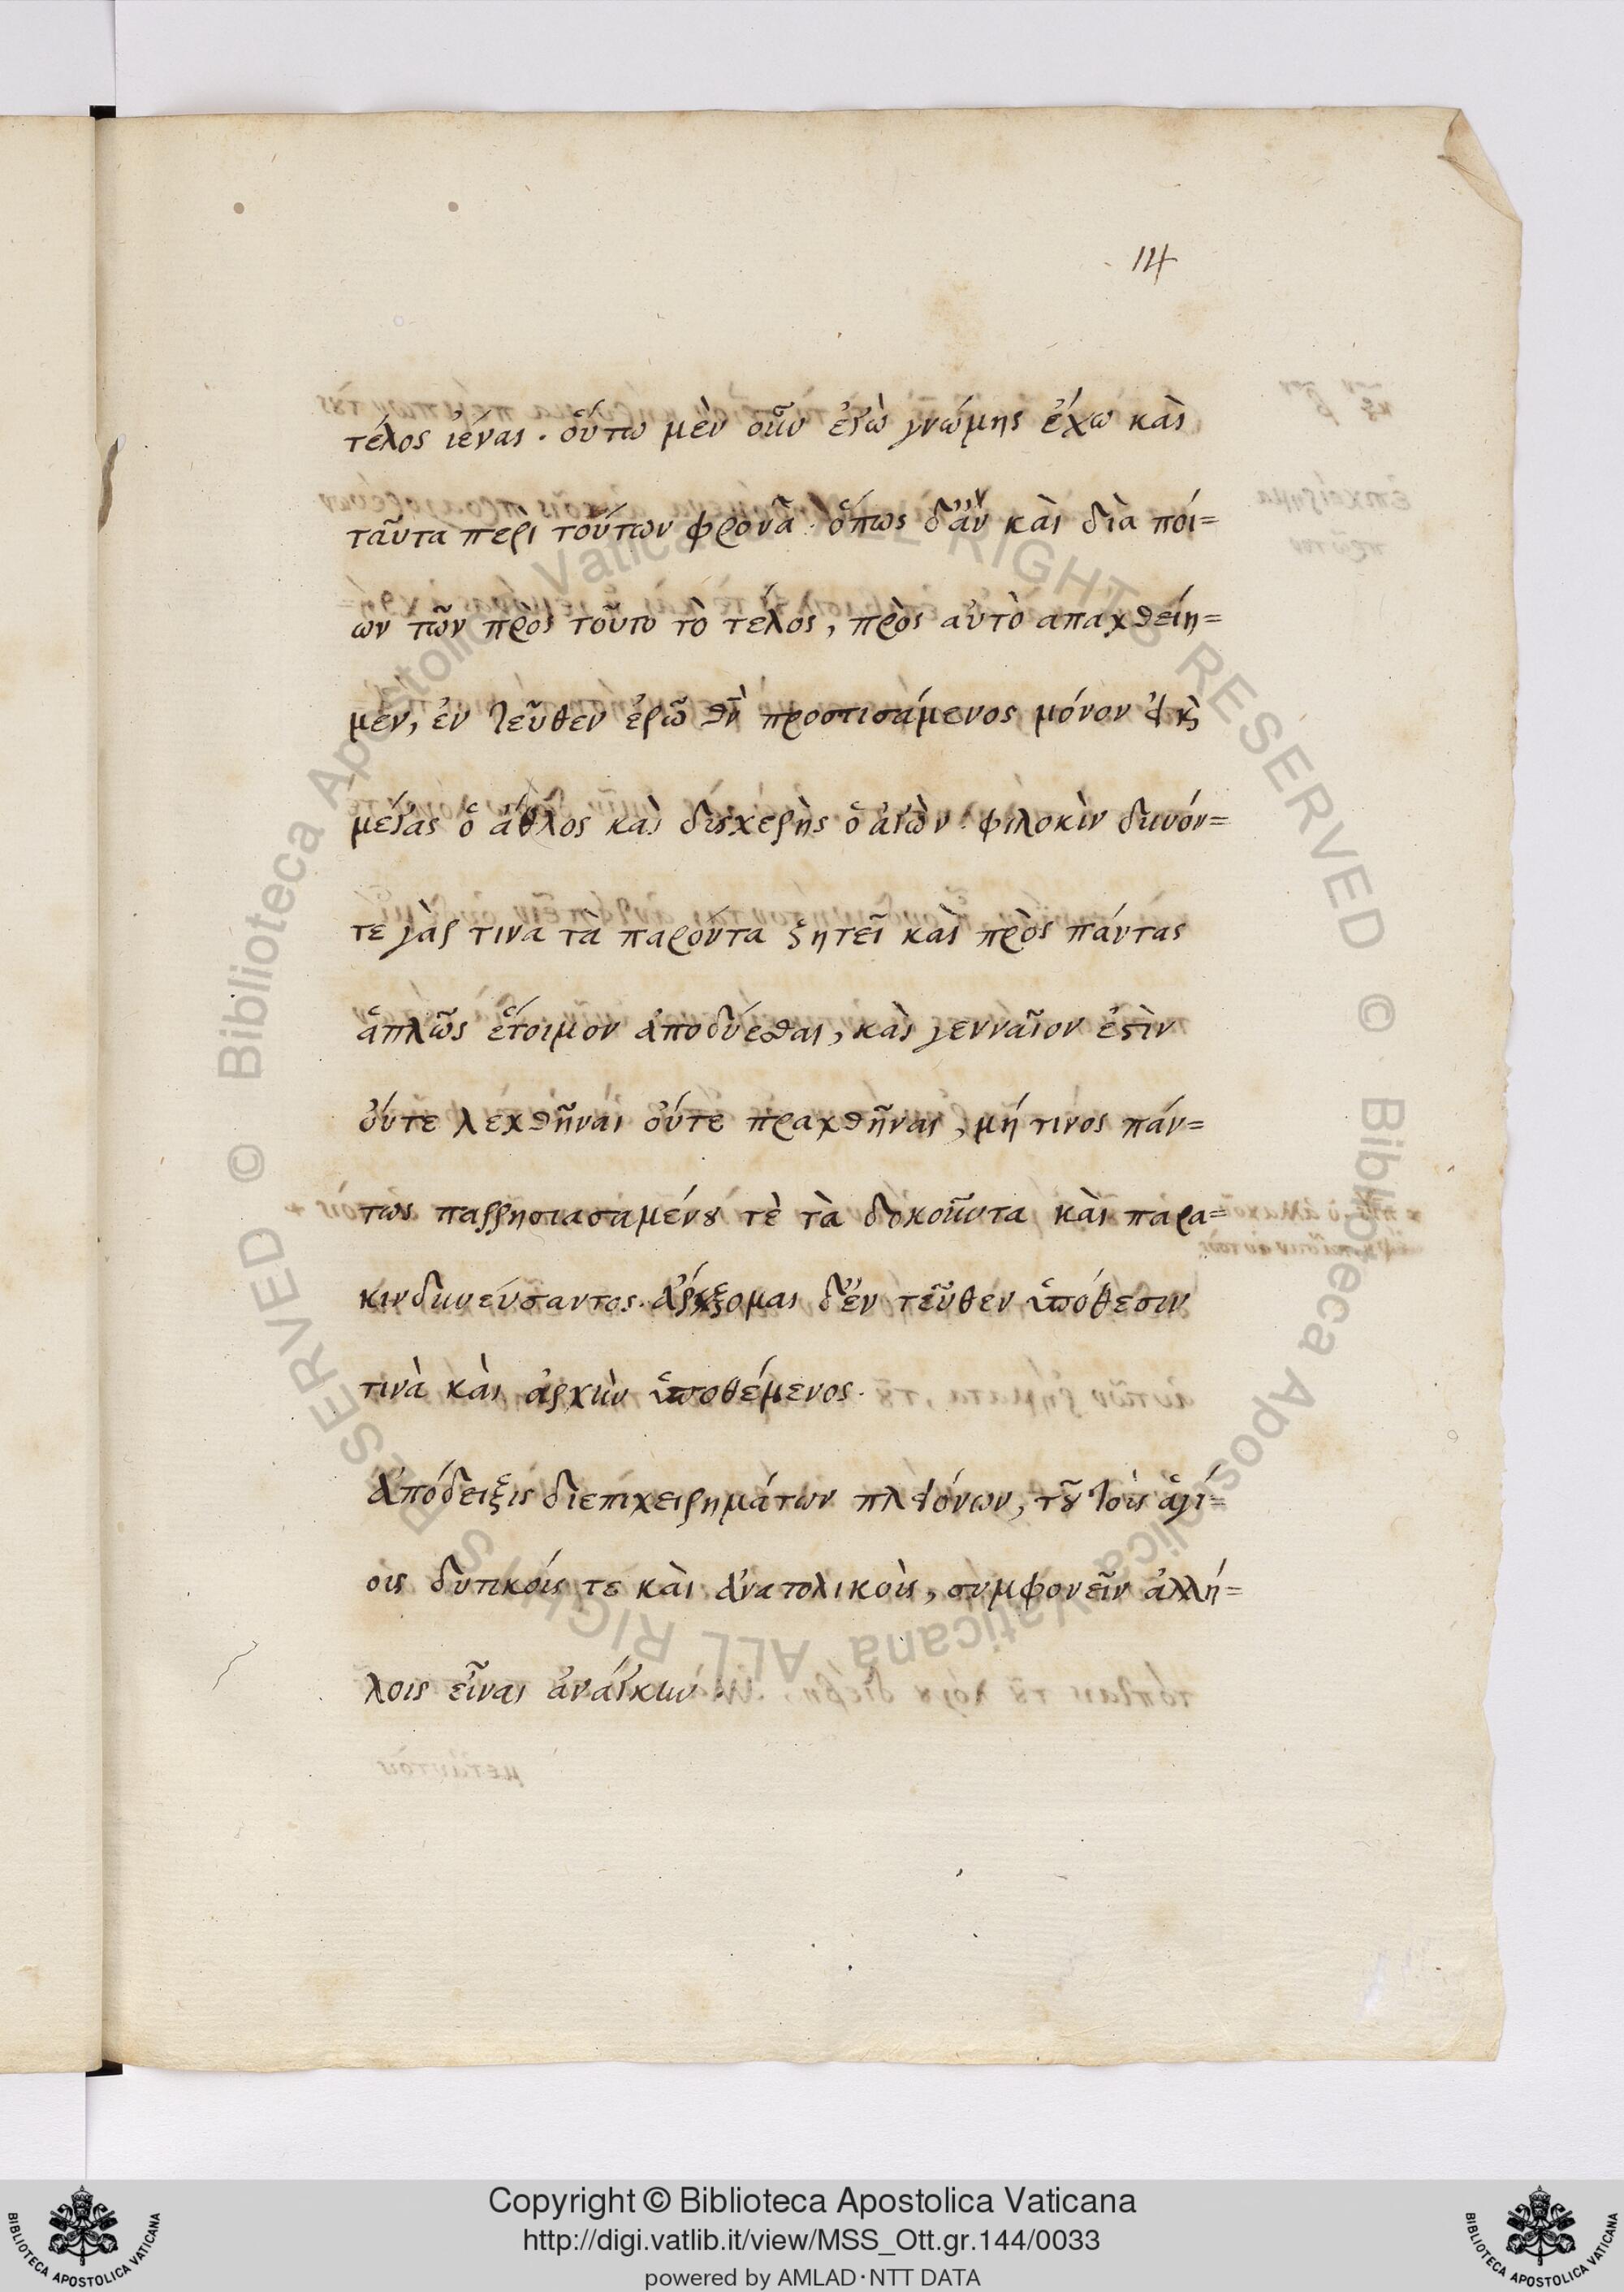 14
τέλος ἰέναι . οὕτω μὲν οὖν ἐγὼ γνώμης ἔχω καὶ
ταῦτα περι τούτων φρονῶ . ὅπως δ' ἂν καὶ δϊὰ ποί=
ων τῶν πρὸς τοῦτο τὸ τέλος, πρὸς αὐτὸ απαχθείη=
μεν, ἐν τεῦθεν ἐρῶ θν̀ προστισάμενος μόνον εἰ κὶ
μέγας ὁ ἆθλος καὶ δυσχερὴς ὁ ἀγὼν . φιλοκὶν δυνόν=
τε γὰρ τινα τὰ παρόντα ζητεῖ καὶ πρὸς πάντας
ἁπλῶς ἕτοιμον ἀποδύεσθαι, καὶ γενναῖον ἐστὶν
οὔτε λεχθῆναι οὔτε πραχθῆναι, μή τινος πάν=
τως παρρησιασαμένου τὲ τὰ δοκοῦντα καὶ παρα=
κινδυνεύσαντος . ἄρξομαι δ' ἐν τεῦθεν ὑπόθεσιν
τινὰ καὶ ἀρχὴν ὑποθέμενος .
Ἀπόδειξις διεπιχειρημάτων πλειόνων, τοῦ τοῖς ἁγί=
οις δυτικοῖς τε καὶ ἀνατολικοῖς, συμφονεῖν ἀλλή=
λοις εἶναι ἀνάγκην .
Copyright © Biblioteca Apostolica Vaticana
http://digi.vatlib.it/view/MSS_Ott.gr.144/0033
powered by AMLAD·NTT DATA
BIBLIOTECA APOSTOLICA VATICANA
BIBLIOTECA APOSTOLICA VATICANA
© Biblioteca Apostolica Vaticana ALL RIGHTS RESERVED
© Biblioteca Apostolica Vaticana ALL RIGHTS RESERVED